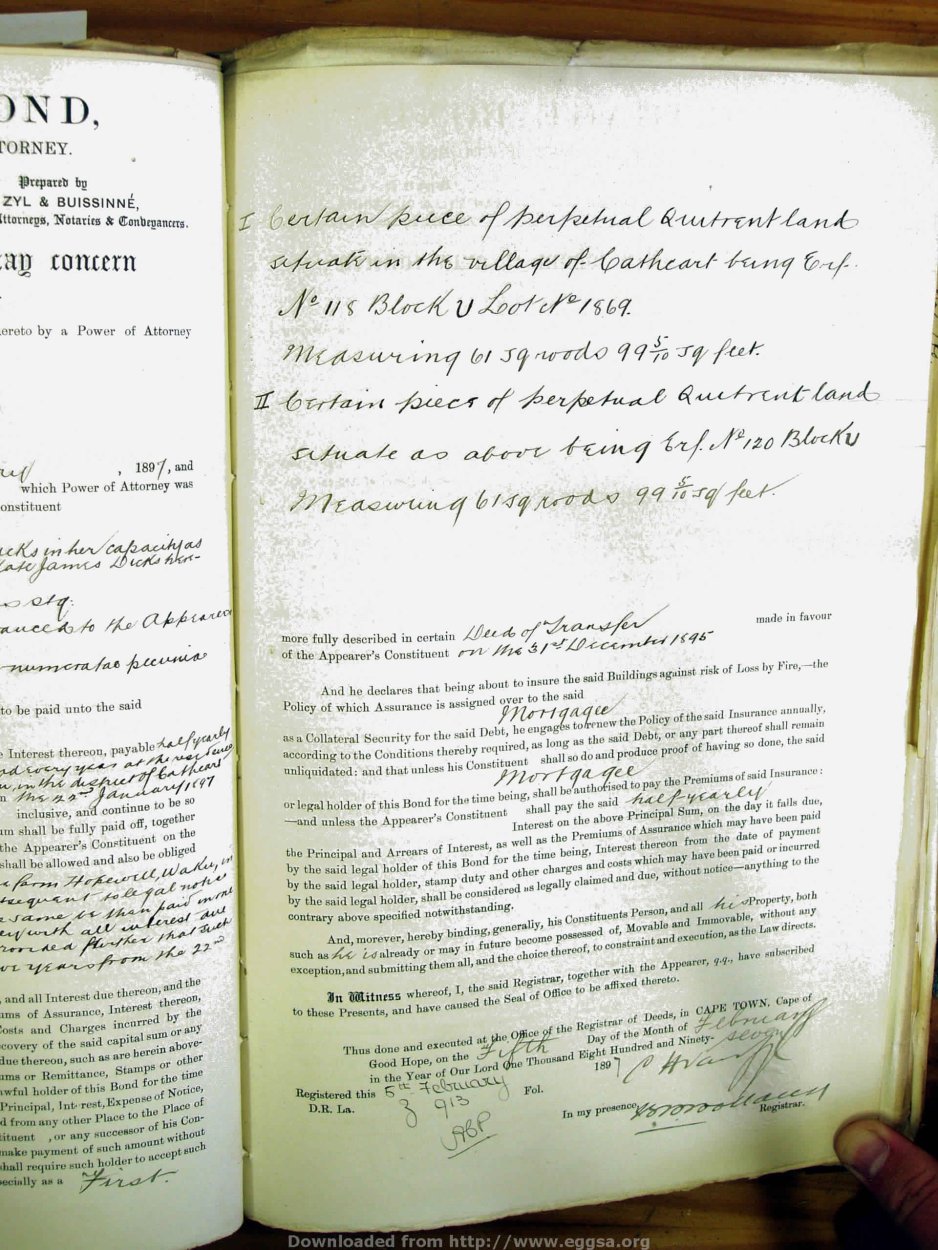 OND,
TORNEY.
Prepared by
ZYL & BUISSINNÉ,
Attorneys, Notaries & Conveyancers.
may concern
hereto by a Power of Attorney
, 1897, and
which Power of Attorney was
onstituent
in her capacity as
late James Dicks
stg:
to the Appearer
numeratae pecunia
to be paid unto the said
Interest thereon, payable half yearly
every year at the
in the district of Cathcart
the 22nd January 1897
inclusive, and continue to be so
um shall be fully paid off, together
the Appearer's Constituent on the
shall be allowed and also be obliged
farm Hopewell,
to legal notice
same be then paid
with all interest due
further that such
years from the 22nd
, and all Interest due thereon, and the
ums of Assurance, Interest thereon,
Costs and Charges incurred by the
covery of the said capital sum or any
due thereon, such as are herein above-
ums or Remittance, Stamps or other
awful holder of this Bond for the time
Principal, Int rest, Expense of Notice,
d from any other Place to the Place of
stituent , or any successor of his Con-
make payment of such amount without
shall require such holder to accept such
pecially as a First.
I Certain piece of perpetual Quitrent land
situate in the village of Cathcart being Erf.
No 118 Block U Lot No 1869.
Measuring 61 sq roods 99 5/10 sq feet.
II Certain piece of perpetual Quitrent land
situate as above being Erf. No 120 Block U
Measuring 61 sq roods 99 5/10 sq feet.
more fully described in certain Deed of Transfer made in favour
of the Appearer's Constituent on the 31st December 1895
And he declares that being about to insure the said Buildings against risk of Loss by Fire,—the
Policy of which Assurance is assigned over to the said
Mortgagee
as a Collateral Security for the said Debt, he engages to renew the Policy of the said Insurance annually,
according to the Conditions thereby required, as long as the said Debt, or any part thereof shall remain
unliquidated: and that unless his Constituent shall so do and produce proof of having so done, the said
Mortgagee
or legal holder of this Bond for the time being, shall be authorised to pay the Premiums of said Insurance:
—and unless the Appearer's Constituent shall pay the said half yearly
Interest on the above Principal Sum, on the day it falls due,
the Principal and Arrears of Interest, as well as the Premiums of Assurance which may have been paid
by the said legal holder of this Bond for the time being, Interest thereon from the date of payment
by the said legal holder, stamp duty and other charges and costs which may have been paid or incurred
by the said legal holder, shall be considered as legally claimed and due, without notice—anything to the
contrary above specified notwithstanding.
And, morever, hereby binding, generally, his Constituents Person, and all his Property, both
such as he is already or may in future become possessed of, Movable and Immovable, without any
exception, and submitting them all, and the choice thereof, to constraint and execution, as the Law directs.
In Witness whereof, I, the said Registrar, together with the Appearer, q.q., have subscribed
to these Presents, and have caused the Seal of Office to be affixed thereto.
Thus done and executed at the Office of the Registrar of Deeds, in CAPE TOWN, Cape of
Good Hope, on the Fifth Day of the Month of February
in the Year of Our Lord One Thousand Eight Hundred and Ninety-seven
1897
Registered this 5th February Fol.
D.R. La. 913
In my presence,
Registrar.
Downloaded from http://www.eggsa.org